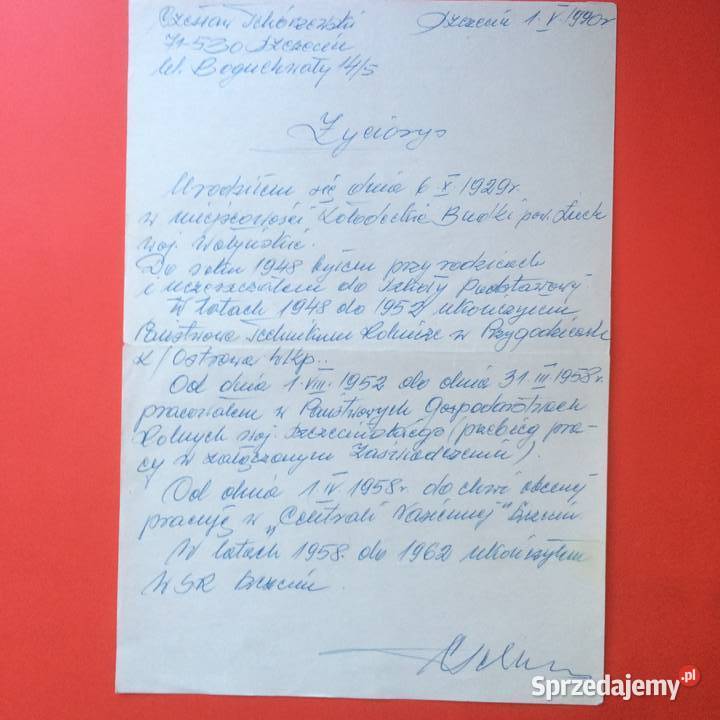 Czesław Tchórzewski Szczecin 1.V.1990r
71-530 Szczecin
ul. Boguchwały 14/5
Życiorys
Urodziłem się dnia 6.X.1929r.
w miejscowości Budki pow. Łuck
woj. Wołyńskie.
Do roku 1948 byłem przy rodzicach
i uczęszczałem do Szkoły Podstawowej.
W latach 1948 do 1952 ukończyłem
Państwowe Technikum Rolnicze w Przygodzicach
k/Ostrowa Wlkp..
Od dnia 1.VIII.1952 do dnia 31.III.1958r.
pracowałem w Państwowych Gospodarstwach
Rolnych woj. Szczecińskiego (przebieg pra-
cy w załączonym zaświadczeniu).
Od dnia 1.IV.1958r. do chwili obecnej
pracuję w "Centrali Nasiennej" Szczecin.
W latach 1958. do 1962 ukończyłem
WSR Szczecin.
Sprzedajemy.pl